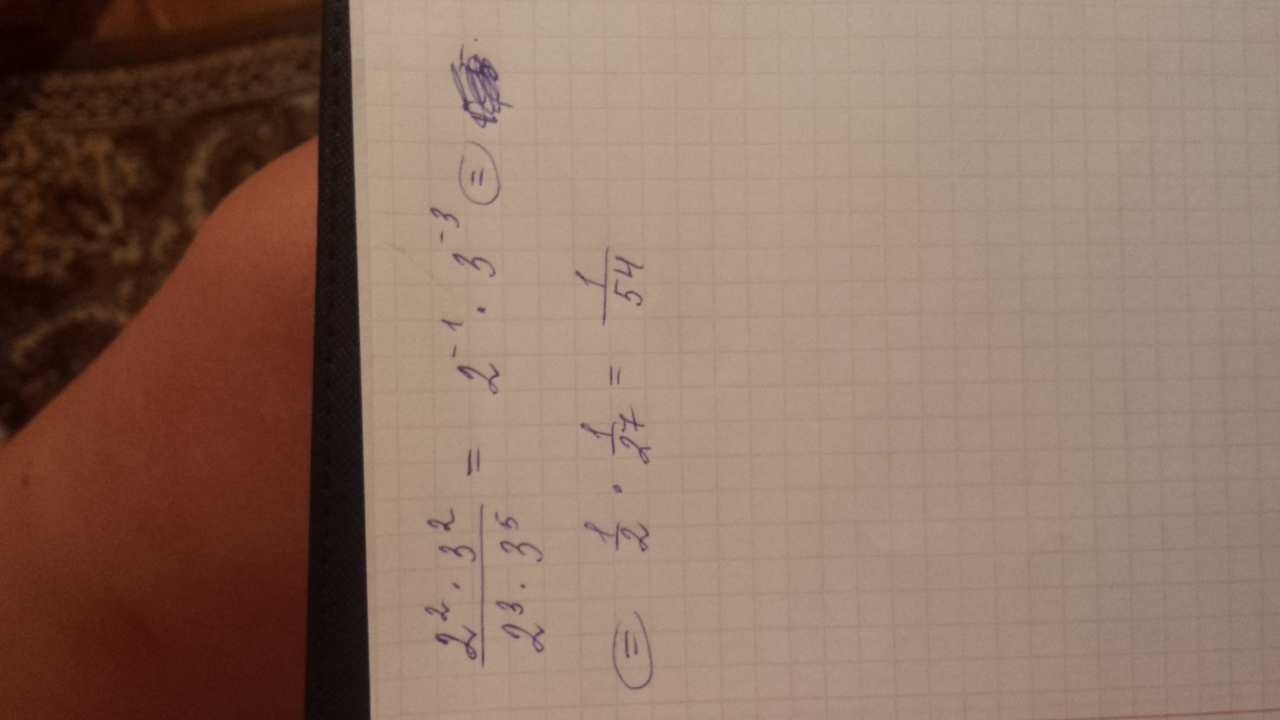 2² · 3² / 2³ · 3⁵ = 2⁻¹ · 3⁻³ =
= 1/2 · 1/27 = 1/54